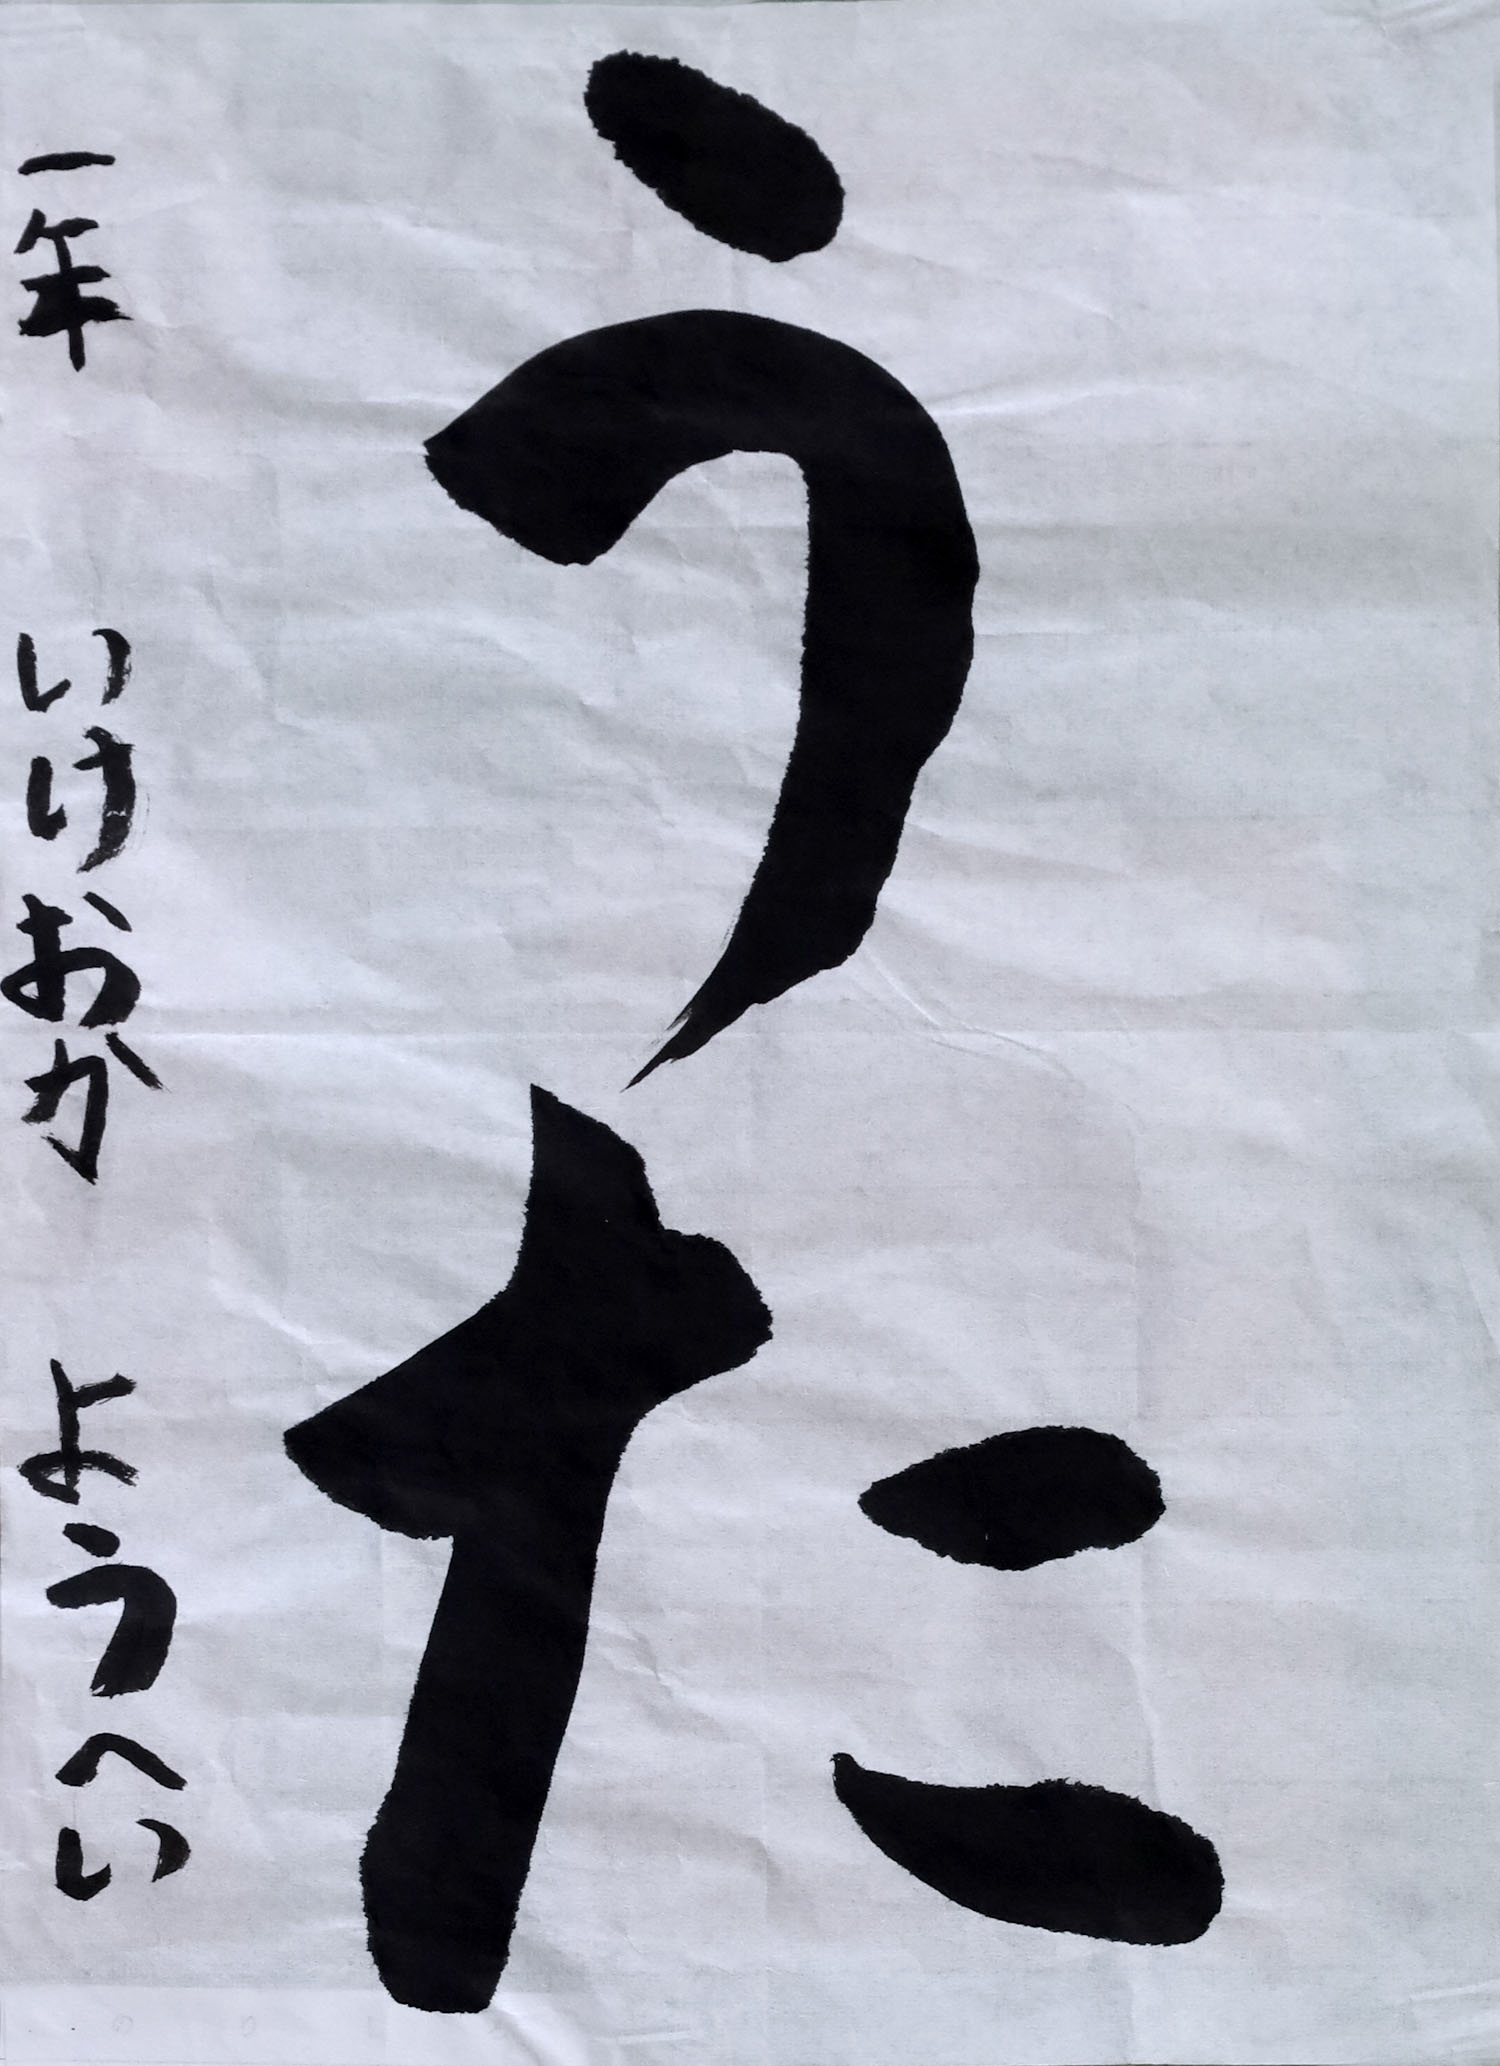 うた
一年 いけおか ようへい